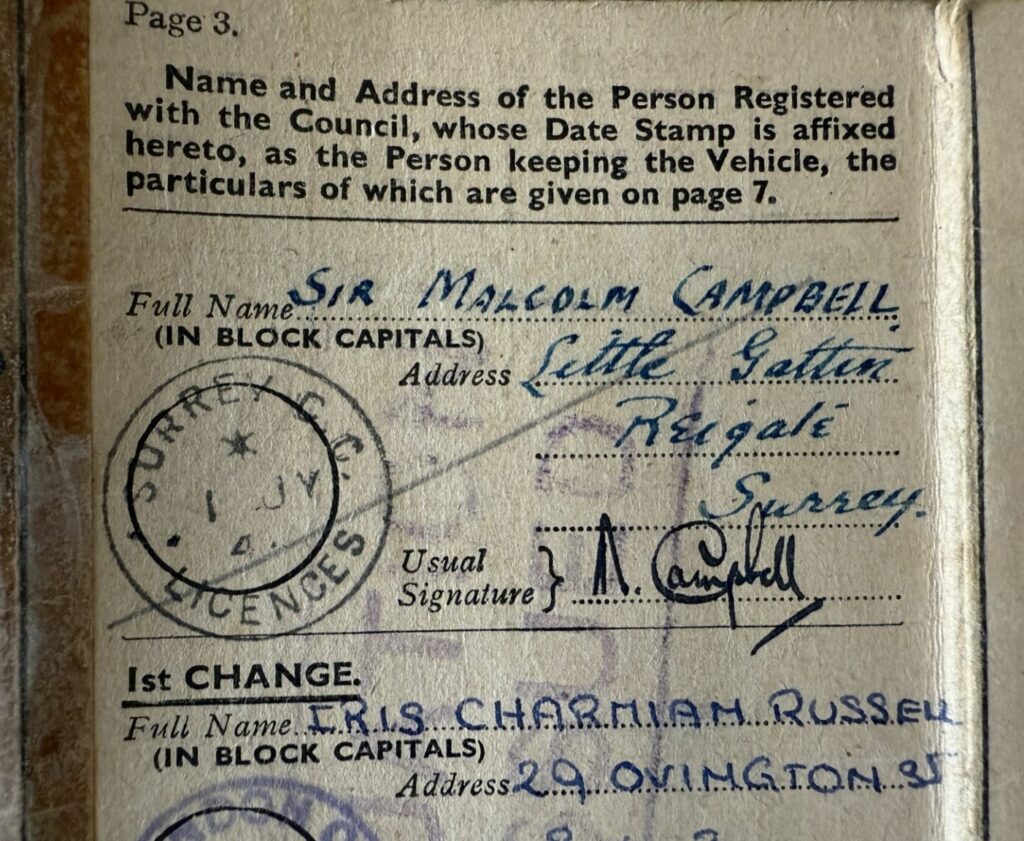 Page 3.
Name and Address of the Person Registered
with the Council, whose Date Stamp is affixed
hereto, as the Person keeping the Vehicle, the
particulars of which are given on page 7.
Full Name SIR MALCOLM CAMPBELL.
(IN BLOCK CAPITALS)
Address Little Gatton
Reigate
Surrey.
SURREY C.C.
1 JY
LICENCES
Usual
Signature } M. Campbell
1st CHANGE.
Full Name IRIS CHARMIAM RUSSELL
(IN BLOCK CAPITALS)
Address 29 OVINGTON